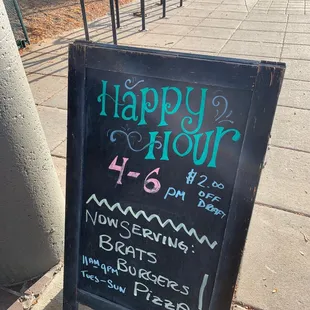 Happy
Hour
4-6 PM
$2.00
OFF
DRAFT
NOW SERVING:
BRATS
BURGERS
PIZZA
11AM-9PM
TUES-SUN